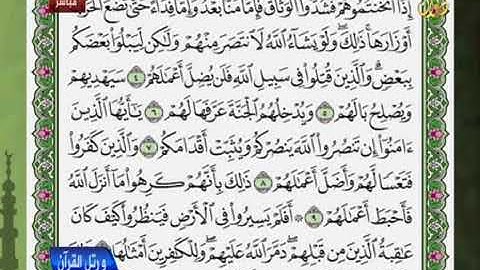 مباشر
إِذَآ أَثۡخَنتُمُوهُمۡ فَشُدُّواْ ٱلۡوَثَاقَ فَإِمَّا مَنَّۢا بَعۡدُ وَإِمَّا فِدَآءً حَتَّىٰ تَضَعَ ٱلۡحَرۡبُ
أَوۡزَارَهَاۚ ذَٰلِكَۖ وَلَوۡ يَشَآءُ ٱللَّهُ لَٱنتَصَرَ مِنۡهُمۡ وَلَٰكِن لِّيَبۡلُوَاْ بَعۡضَكُم
بِبَعۡضٖۗ وَٱلَّذِينَ قُتِلُواْ فِي سَبِيلِ ٱللَّهِ فَلَن يُضِلَّ أَعۡمَٰلَهُمۡ ٤ سَيَهۡدِيهِمۡ
وَيُصۡلِحُ بَالَهُمۡ ٥ وَيُدۡخِلُهُمُ ٱلۡجَنَّةَ عَرَّفَهَا لَهُمۡ ٦ يَٰٓأَيُّهَا ٱلَّذِينَ
ءَامَنُوٓاْ إِن تَنصُرُواْ ٱللَّهَ يَنصُرۡكُمۡ وَيُثَبِّتۡ أَقۡدَامَكُمۡ ٧ وَٱلَّذِينَ كَفَرُواْ
فَتَعۡسٗا لَّهُمۡ وَأَضَلَّ أَعۡمَٰلَهُمۡ ٨ ذَٰلِكَ بِأَنَّهُمۡ كَرِهُواْ مَآ أَنزَلَ ٱللَّهُ
فَأَحۡبَطَ أَعۡمَٰلَهُمۡ ٩ ۞ أَفَلَمۡ يَسِيرُواْ فِي ٱلۡأَرۡضِ فَيَنظُرُواْ كَيۡفَ كَانَ
عَٰقِبَةُ ٱلَّذِينَ مِن قَبۡلِهِمۡۖ دَمَّرَ ٱللَّهُ عَلَيۡهِمۡۖ وَلِلۡكَٰفِرِينَ أَمۡثَٰلُهَا
و رتل القرآن